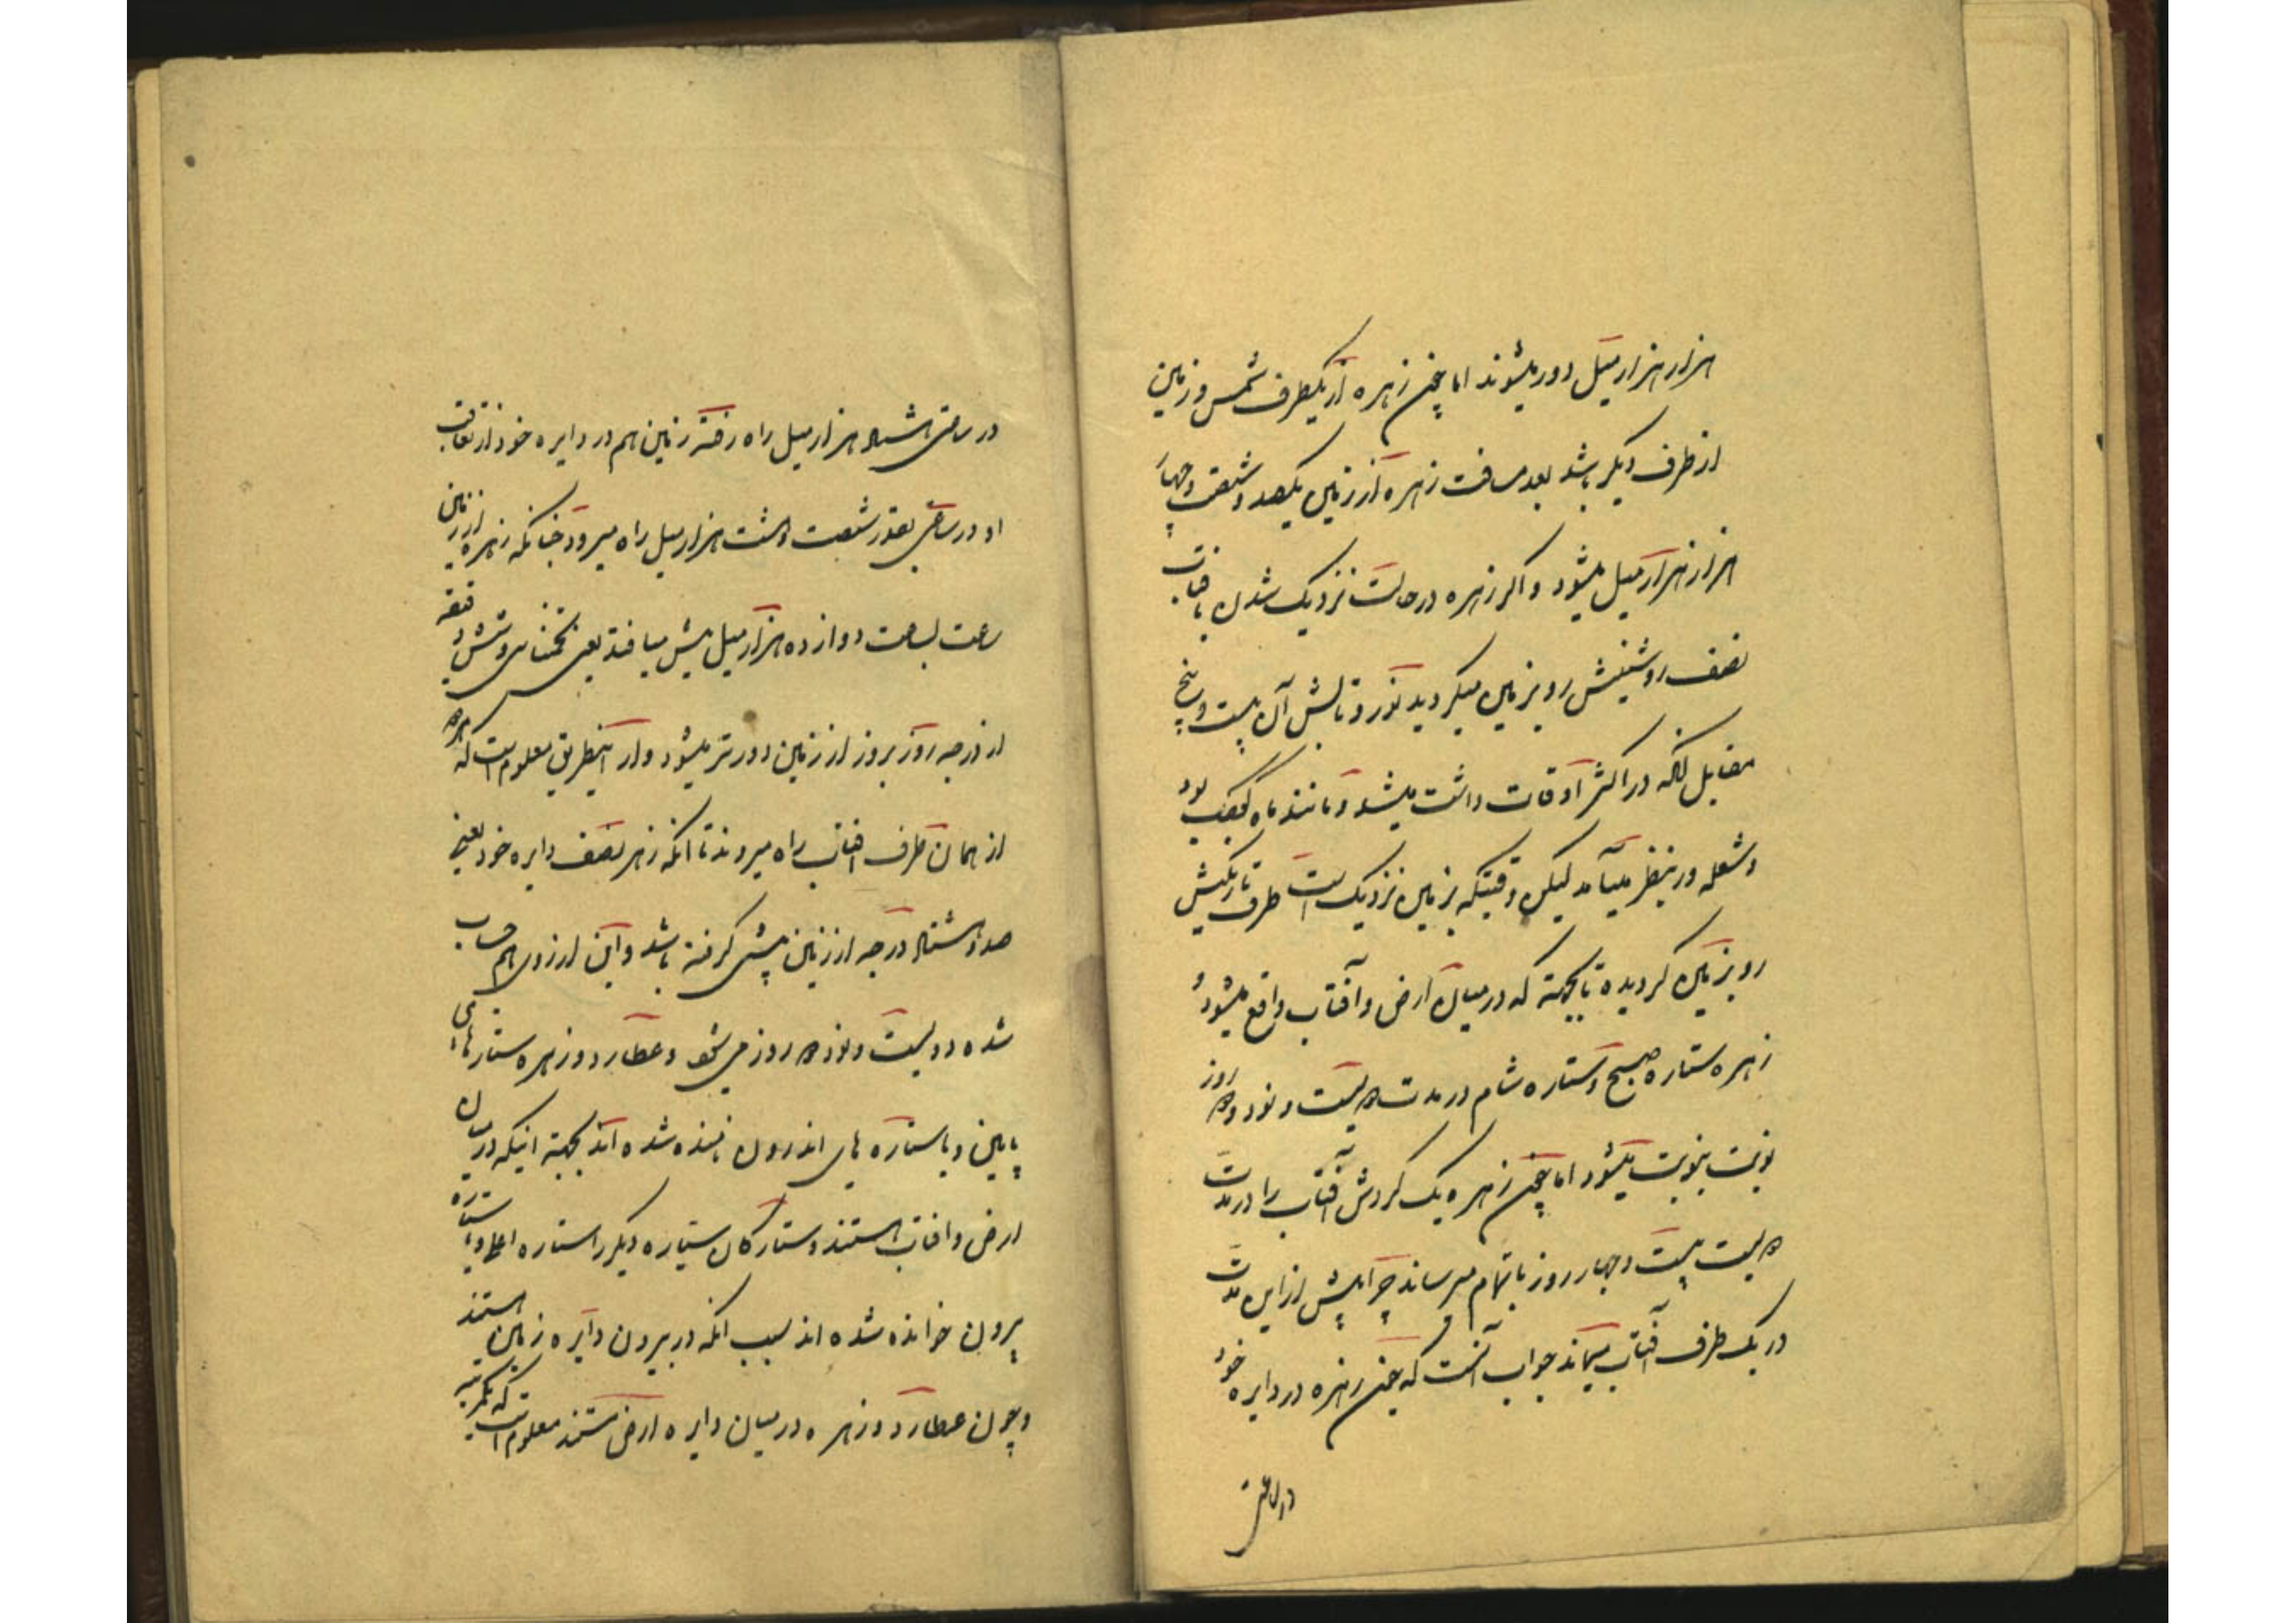 هزار هزار میل دور میشوند اما چون زهره از یکطرف شمس و زمین
از طرف دیگر باشد بعد مسافت زهره از زمین یکصد و شصت و چهار
هزار هزار میل میشود و اگر زهره در حالت نزدیک شدن بافتاب
نصف روشنیش رو بزمین میگردید نور و تابش آن بیست و پنج
مقابل آنکه در اکثر اوقات داشت میشد و مانند ماه کوچک بود
و شعله ور بنظر میآمد لیکن وقتیکه بزمین نزدیک است طرف تاریکش
رو بزمین گردیده بجهته که در میان ارض و آفتاب واقع میشود و
زهره ستاره صبح و ستاره شام در مدت دویست و نود و دو روز
نوبت بنوبت میشود اما چون زهره یک گردش آفتاب را در مدت
دویست بیست و چهار روز باتمام میرساند چرا بیش از این مدت
در یک طرف آفتاب میماند جواب آنست که چون زهره در دایره خود
در ساعتی
در ساعتی هشتاد هزار میل راه رفته زمین هم در دایره خود از تعاقب
او در ساعتی بقدر شصت و هشت هزار میل راه میرود چنانکه زهره از زمین
ساعت بساعت دوازده هزار میل پیش میافتد یعنی تخمینا سی و شش دقیقه
از درجه روز بروز از زمین دورتر میشود و از اینطریق معلوم است که هر دو
از همان طرف افتاب راه میروند تا آنکه زهره نصف دایره خود یعنی
صد و هشتاد درجه از زمین پیشی گرفته باشد و این از روی هم حساب
شده دویست و نود دو روز می شود و عطارد و زهره ستارهای
پایین و یا ستاره های اندرون نامیده شده اند بجهته اینکه در میان
ارض و افتاب هستند و ستارگان سیاره دیگر را ستاره اعلی و یا ستاره
بیرون خوانده شده اند بسبب آنکه در بیرون دایره زمین هستند
و چون عطارد و زهره در میان دایره ارض هستند معلوم است که یکمرتبه